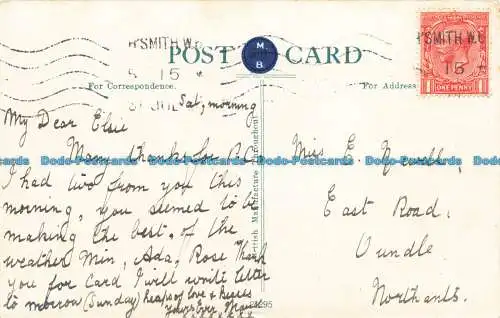 H'SMITH W.6
5 15
31 JUL
POST CARD
M.
B.
For Correspondence.
For Address
H'SMITH W.6
15
1 ONE PENNY 1
Sat, morning
My Dear Elsie
Many thanks for P.C.
I had two from you this
morning, you seemed to be
making the best of the
weather Min, Ada, Rose Thank
you for Card I will write letter
to morrow (Sunday) heaps of love & kisses
Yours Ever,
x x x x x x
British Manufacture Throughout
Miss E.
East Road,
Oundle
Northants.
295
bilder-Postcards